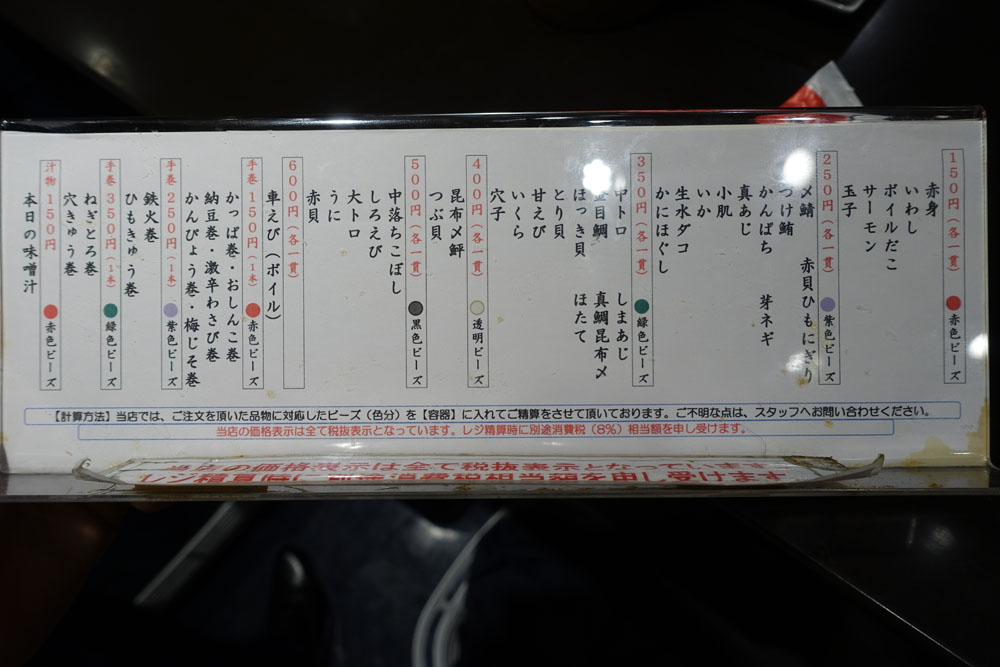 150円(各一貫) 赤色ビーズ
赤身
いわし
ボイルだこ
サーモン
玉子
250円(各一貫) 紫色ビーズ
〆鯖 赤貝ひもにぎり
つけ鮪
かんぱち 芽ネギ
真あじ
小肌
いか
生水ダコ
かにほぐし
350円(各一貫) 緑色ビーズ
中トロ しまあじ
金目鯛 真鯛昆布〆
ほっき貝 ほたて
とり貝
甘えび
いくら
穴子
400円(各一貫) 透明ビーズ
昆布〆鮃
つぶ貝
500円(各一貫) 黒色ビーズ
中落ちこぼし
しろえび
大トロ
うに
赤貝
600円(各一貫)
車えび(ボイル)
手巻150円(1本) 赤色ビーズ
かっぱ巻・おしんこ巻
納豆巻・激辛わさび巻
かんぴょう巻・梅じそ巻
手巻250円(1本) 紫色ビーズ
鉄火巻
ひもきゅう巻
手巻350円(1本) 緑色ビーズ
ねぎとろ巻
穴きゅう巻
汁物150円 赤色ビーズ
本日の味噌汁
【計算方法】当店では、ご注文を頂いた品物に対応したビーズ(色分)を【容器】に入れてご精算をさせて頂いております。ご不明な点は、スタッフへお問い合わせください。
当店の価格表示は全て税抜表示となっています。レジ精算時に別途消費税(8%)相当額を申し受けます。
当店の価格表示は全て税抜表示となっています
レジ精算時に別途消費税相当額を申し受けます